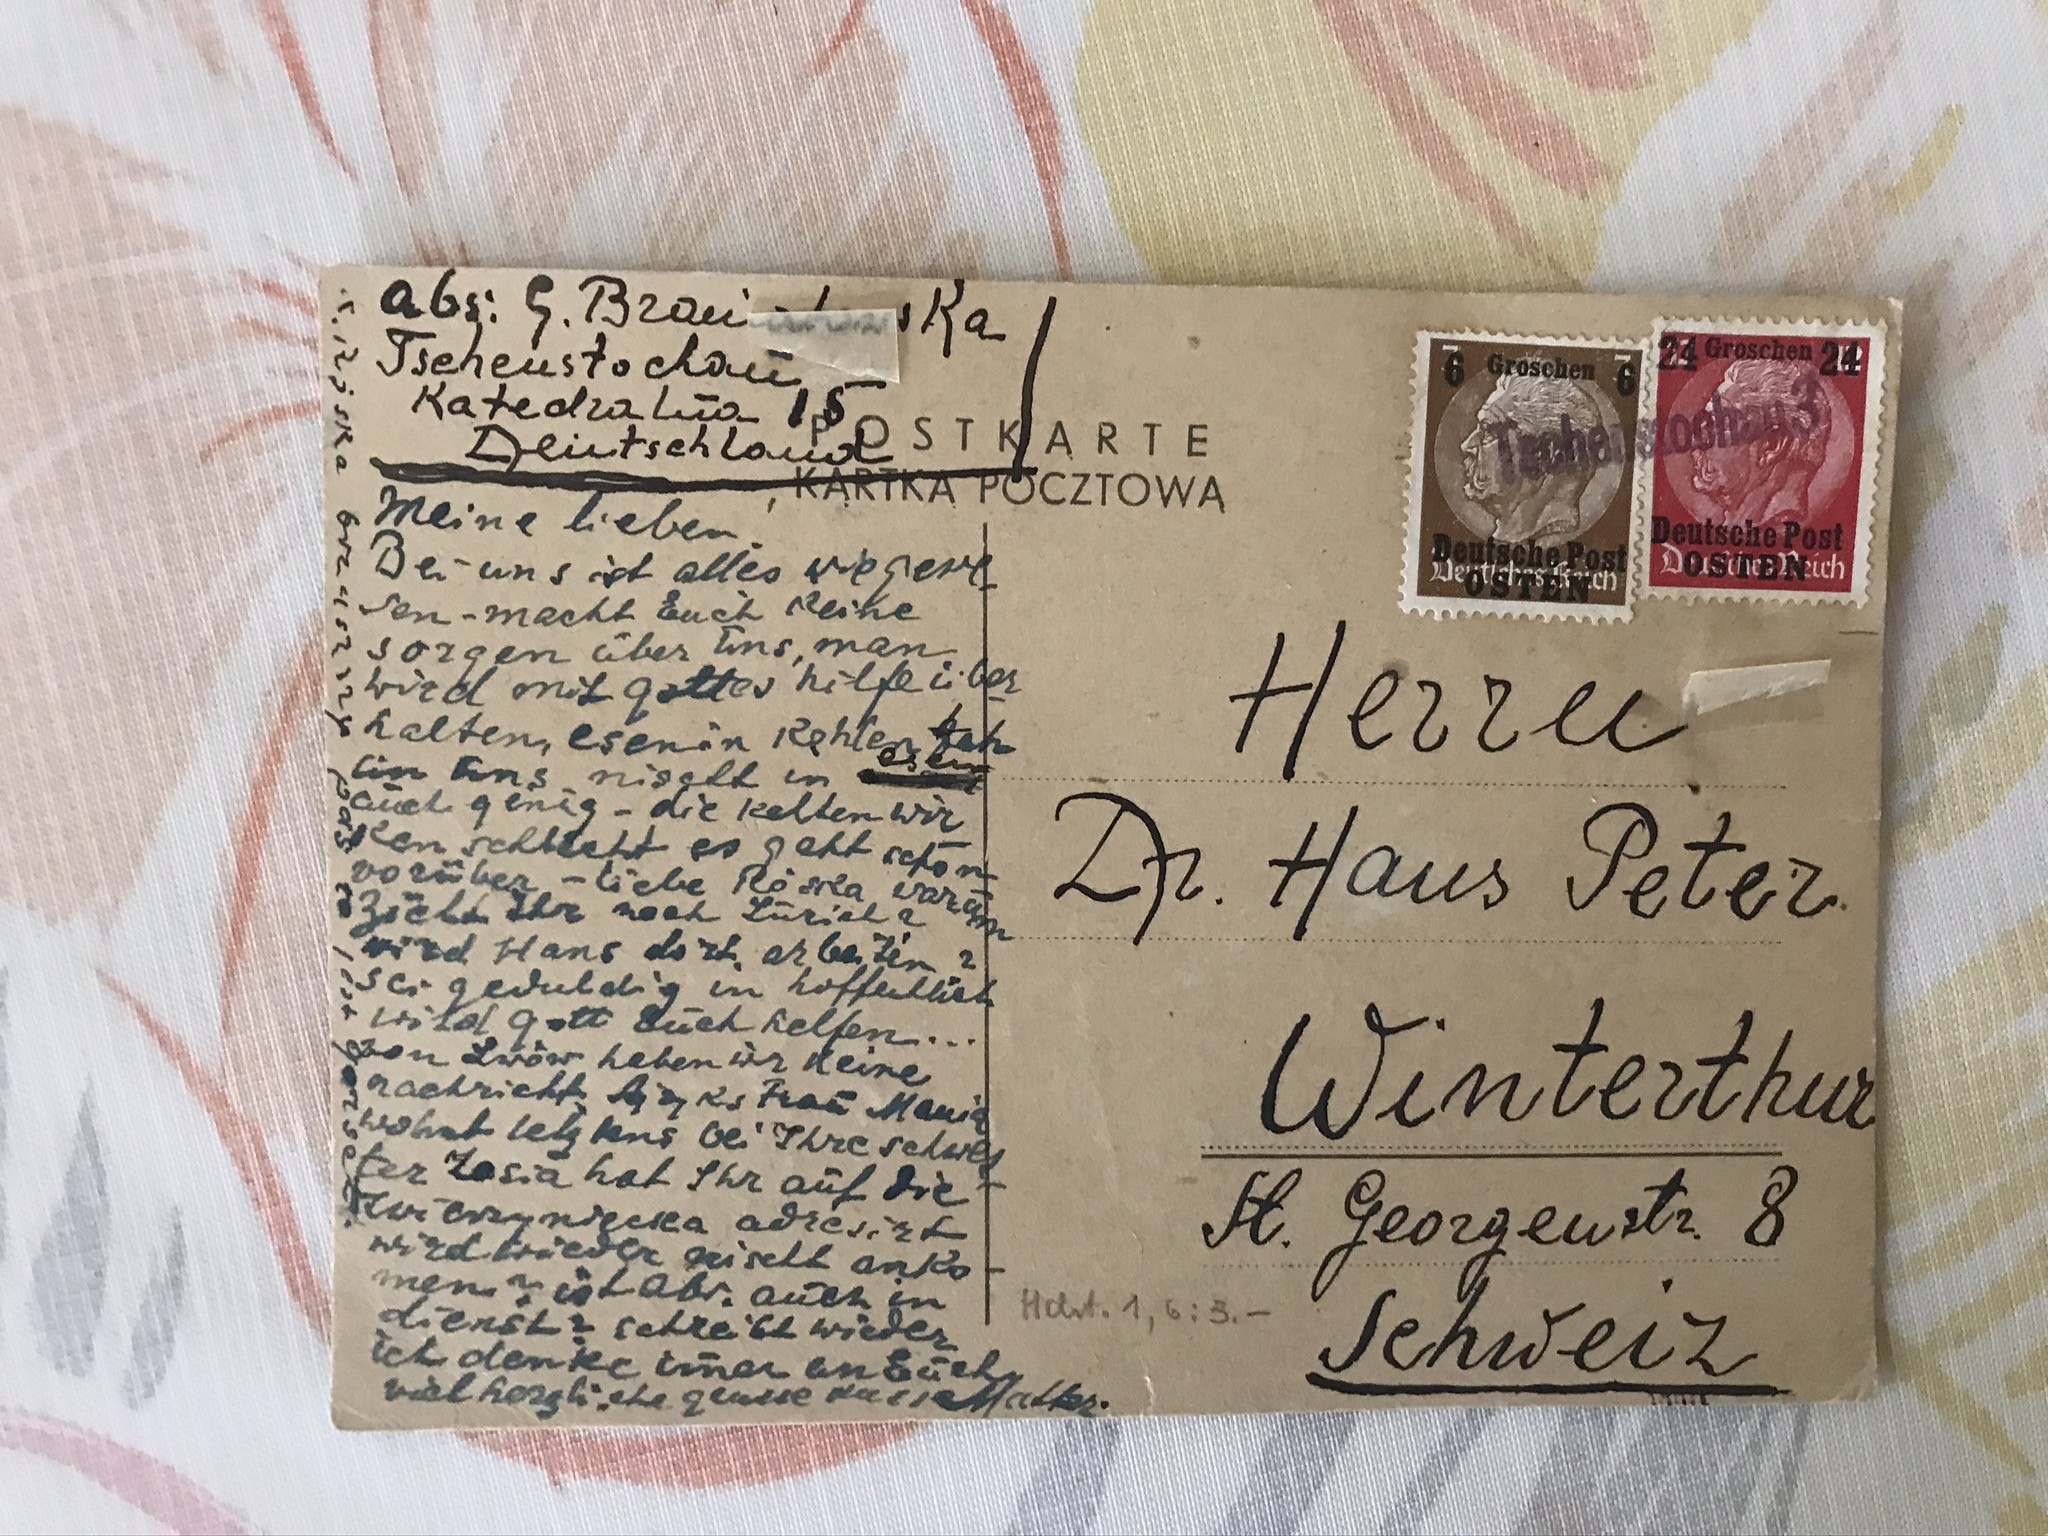 abs: G. Brau
Tschenstochau
Katedralna 15
Deutschland
POSTKARTE
KARTKA POCZTOWA
6 Groschen 6
Deutsche Post
OSTEN
Deutsches Reich
24 Groschen 24
Deutsche Post
OSTEN
Deutsches Reich
Tschenstochau 3
Meine lieben.
Bei uns ist alles wie gewe
sen - macht Euch keine
sorgen über uns, man
wird mit gottes hilfe über
halten, esen in kohlen
uns nischt in
auch genug - die kelten wir
ken schlecht es geht schon
vorüber - liebe Roska warum
Zücht Ihr nach Zürich?
wird Hans dort. arbeiten?
sei geduldig in hoffentlich
wird gott Euch helfen...
von Lwów haben wir keine
nachricht, Frau Mania
wohnt letztens bei Ihre schwes
ter Zosia hat Ihr auf die
Zwierzyniecka adresirt
wird wieder nischt anko-
men? ist abr. auch in
dienst? schreibt wieder
ich denke imer an Euch
viel herzliche Mutter.
Herrn
Dr. Hans Peter.
Winterthur
St. Georgenstr. 8
Schweiz